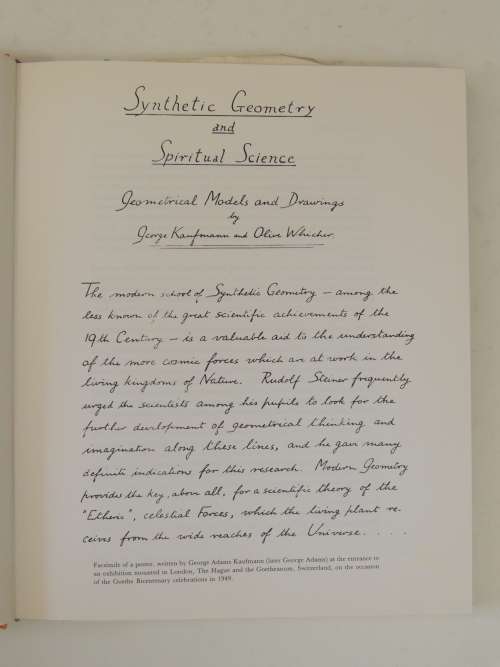 Synthetic Geometry
and
Spiritual Science
Geometrical Models and Drawings
by
George Kaufmann and Olive Whicher.
The modern school of Synthetic Geometry – among the
less known of the great scientific achievements of the
19th Century – is a valuable aid to the understanding
of the more cosmic forces which are at work in the
living kingdoms of Nature. Rudolf Steiner frequently
urged the scientists among his pupils to look for the
further development of geometrical thinking and
imagination along these lines, and he gave many
definite indications for this research. Modern Geometry
provides the key, above all, for a scientific theory of the
"Etheric", celestial Forces, which the living plant re-
ceives from the wide reaches of the Universe. . . . .
Facsimile of a poster, written by George Adams Kaufmann (later George Adams) at the entrance to
an exhibition mounted in London, The Hague and the Goetheanum, Switzerland, on the occasion
of the Goethe Bicentenary celebrations in 1949.